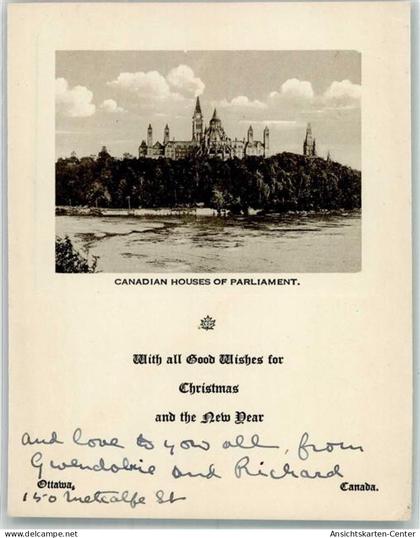 CANADIAN HOUSES OF PARLIAMENT.
With all Good Wishes for
Christmas
and the New Year
and love to you all, from
Gwendolrie and Richard
Ottawa, Canada.
150 Metcalfe St
Ansichtskarten-Center